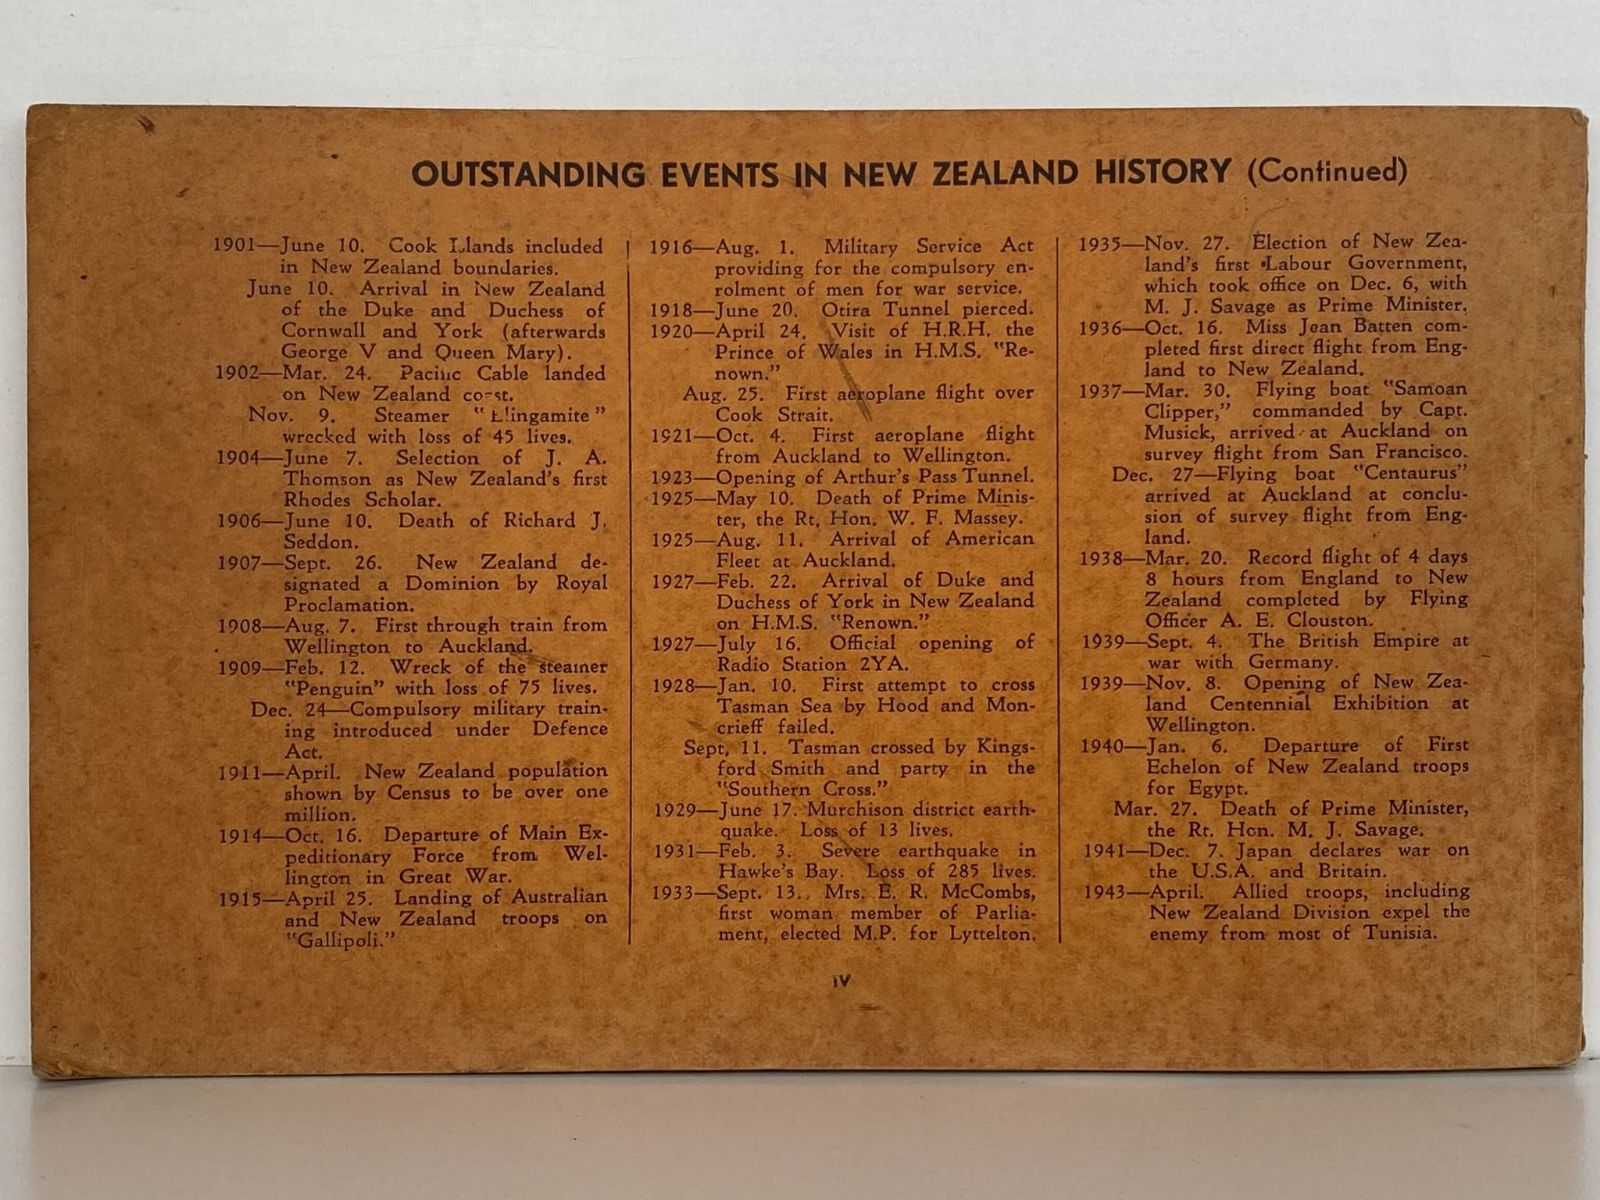 OUTSTANDING EVENTS IN NEW ZEALAND HISTORY (Continued)
1901—June 10. Cook Islands included
in New Zealand boundaries.
June 10. Arrival in New Zealand
of the Duke and Duchess of
Cornwall and York (afterwards
George V and Queen Mary).
1902—Mar. 24. Pacific Cable landed
on New Zealand coast.
Nov. 9. Steamer "Elingamite"
wrecked with loss of 45 lives.
1904—June 7. Selection of J. A.
Thomson as New Zealand's first
Rhodes Scholar.
1906—June 10. Death of Richard J.
Seddon.
1907—Sept. 26. New Zealand de-
signated a Dominion by Royal
Proclamation.
1908—Aug. 7. First through train from
Wellington to Auckland.
1909—Feb. 12. Wreck of the steamer
"Penguin" with loss of 75 lives.
Dec. 24—Compulsory military train-
ing introduced under Defence
Act.
1911—April. New Zealand population
shown by Census to be over one
million.
1914—Oct. 16. Departure of Main Ex-
peditionary Force from Wel-
lington in Great War.
1915—April 25. Landing of Australian
and New Zealand troops on
"Gallipoli."
1916—Aug. 1. Military Service Act
providing for the compulsory en-
rolment of men for war service.
1918—June 20. Otira Tunnel pierced.
1920—April 24. Visit of H.R.H. the
Prince of Wales in H.M.S. "Re-
nown."
Aug. 25. First aeroplane flight over
Cook Strait.
1921—Oct. 4. First aeroplane flight
from Auckland to Wellington.
1923—Opening of Arthur's Pass Tunnel.
1925—May 10. Death of Prime Minis-
ter, the Rt. Hon. W. F. Massey.
1925—Aug. 11. Arrival of American
Fleet at Auckland.
1927—Feb. 22. Arrival of Duke and
Duchess of York in New Zealand
on H.M.S. "Renown."
1927—July 16. Official opening of
Radio Station 2YA.
1928—Jan. 10. First attempt to cross
Tasman Sea by Hood and Mon-
crieff failed.
Sept. 11. Tasman crossed by Kings-
ford Smith and party in the
"Southern Cross."
1929—June 17. Murchison district earth-
quake. Loss of 13 lives.
1931—Feb. 3. Severe earthquake in
Hawke's Bay. Loss of 285 lives.
1933—Sept. 13. Mrs. E. R. McCombs,
first woman member of Parlia-
ment, elected M.P. for Lyttelton.
1935—Nov. 27. Election of New Zea-
land's first Labour Government,
which took office on Dec. 6, with
M. J. Savage as Prime Minister.
1936—Oct. 16. Miss Jean Batten com-
pleted first direct flight from Eng-
land to New Zealand.
1937—Mar. 30. Flying boat "Samoan
Clipper," commanded by Capt.
Musick, arrived at Auckland on
survey flight from San Francisco.
Dec. 27—Flying boat "Centaurus"
arrived at Auckland at conclu-
sion of survey flight from Eng-
land.
1938—Mar. 20. Record flight of 4 days
8 hours from England to New
Zealand completed by Flying
Officer A. E. Clouston.
1939—Sept. 4. The British Empire at
war with Germany.
1939—Nov. 8. Opening of New Zea-
land Centennial Exhibition at
Wellington.
1940—Jan. 6. Departure of First
Echelon of New Zealand troops
for Egypt.
Mar. 27. Death of Prime Minister,
the Rt. Hon. M. J. Savage.
1941—Dec. 7. Japan declares war on
the U.S.A. and Britain.
1943—April. Allied troops, including
New Zealand Division expel the
enemy from most of Tunisia.
iv